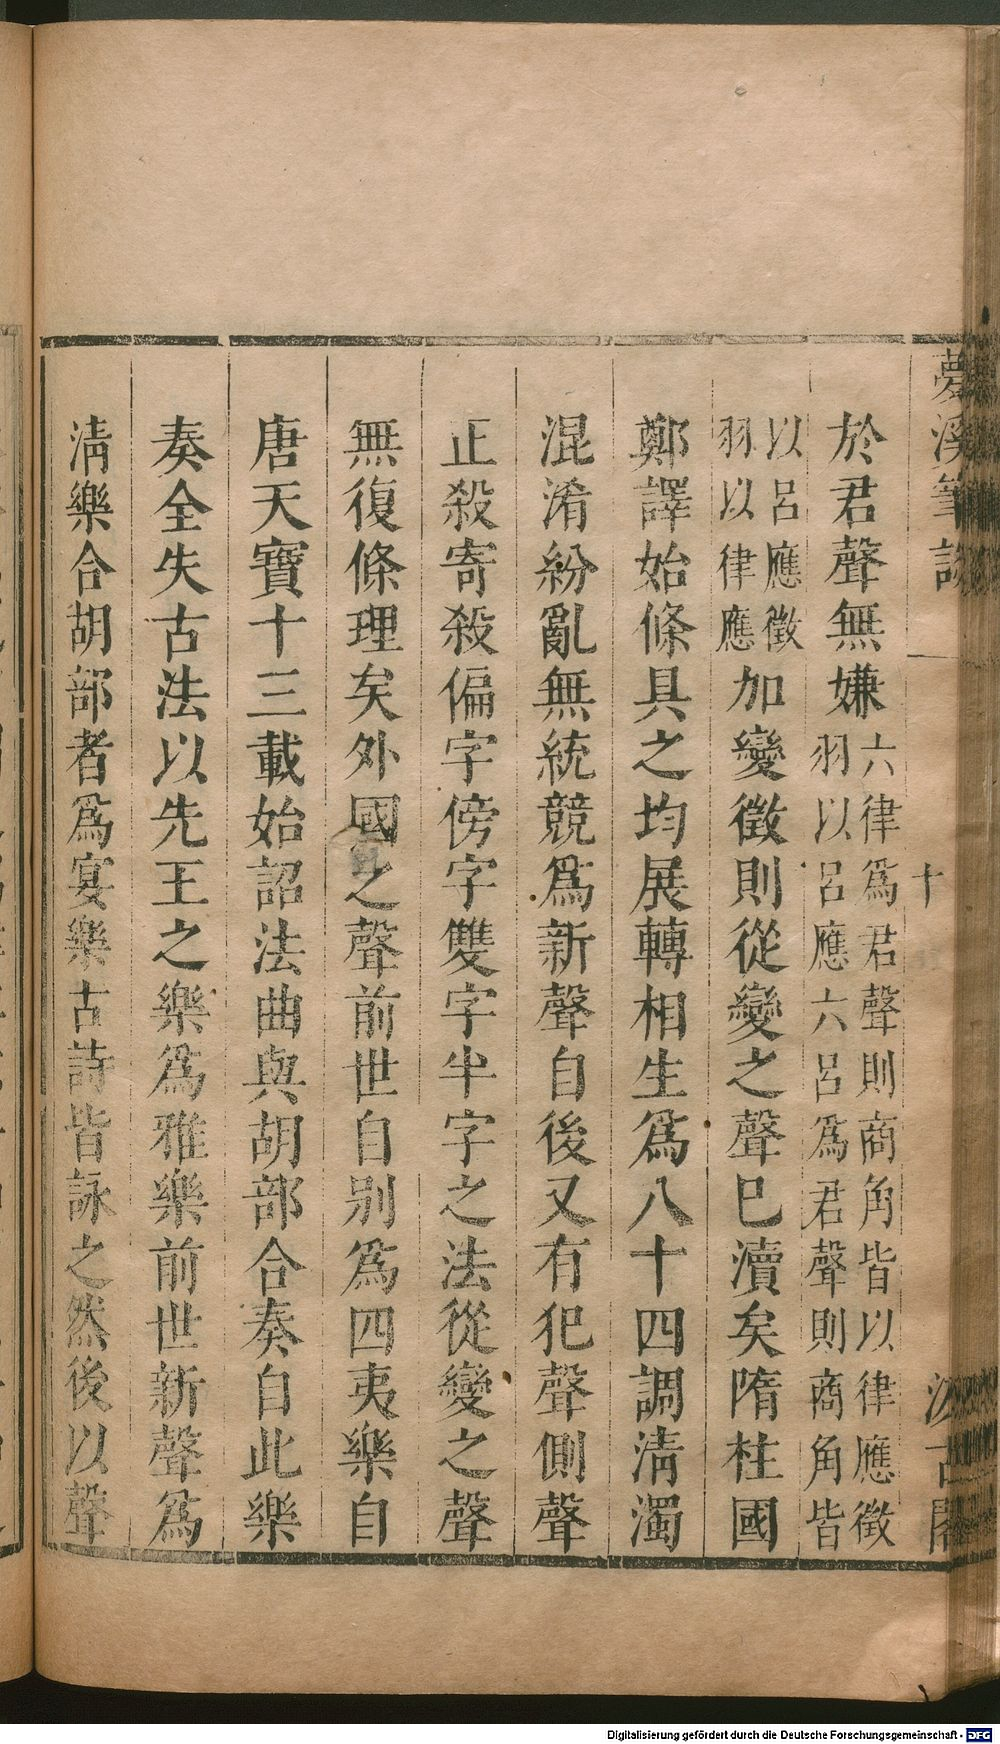 夢溪筆談 一 十 汲古閣
於君聲無嫌六律爲君聲則商角皆以律應徵羽以呂應六呂爲君聲則商角皆
以呂應徵羽以律應加變徵則從變之聲已瀆矣隋柱國
鄭譯始條具之均展轉相生爲八十四調淸濁
混淆紛亂無統競爲新聲自後又有犯聲側聲
正殺寄殺偏字傍字雙字半字之法從變之聲
無復條理矣外國之聲前世自別爲四夷樂自
唐天寶十三載始詔法曲與胡部合奏自此樂
奏全失古法以先王之樂爲雅樂前世新聲爲
淸樂合胡部者爲宴樂古詩皆詠之然後以聲
Digitalisierung gefördert durch die Deutsche Forschungsgemeinschaft - DFG